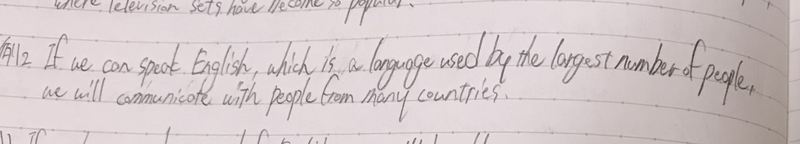 where television sets have become so popular.
例12 If we can speak English, which is a language used by the largest number of people,
we will communicate with people from many countries.